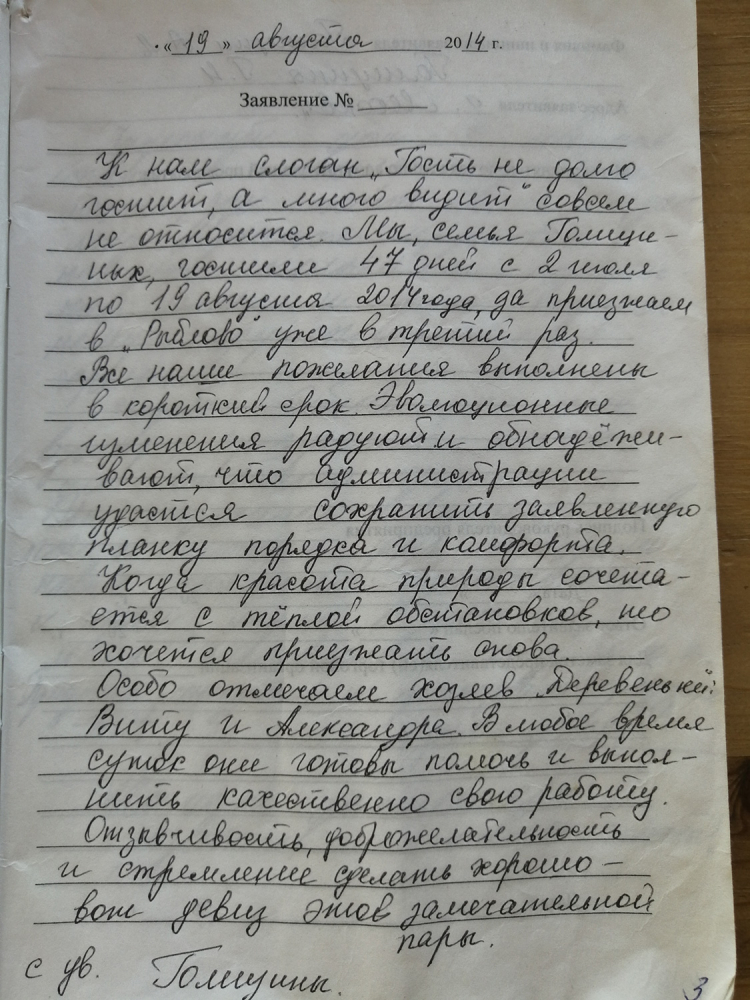 «19» августа 2014 г.
Заявление №
К нам слоган „Гость не долго
гостит, а много видит" совсем
не относится. Мы, семья Голицы-
ных, гостили 47 дней с 2 июля
по 19 августа 2014 года, да приезжаем
в „Рыблово" уже в третий раз.
Все наши пожелания выполнены
в короткий срок. Эволюционные
изменения радуют и обнадёжи-
вают, что администрации
удастся сохранить заявленную
планку порядка и комфорта.
Когда красота природы сочета-
ется с тёплой обстановкой, то
хочется приезжать снова.
Особо отмечаем хозяев „Деревеньки":
Виту и Александра. В любое время
суток они готовы помочь и выпол-
нить качественно свою работу.
Отзывчивость, доброжелательность
и стремление сделать хорошо –
вот девиз этой замечательной
пары.
с ув. Голицыны.
3